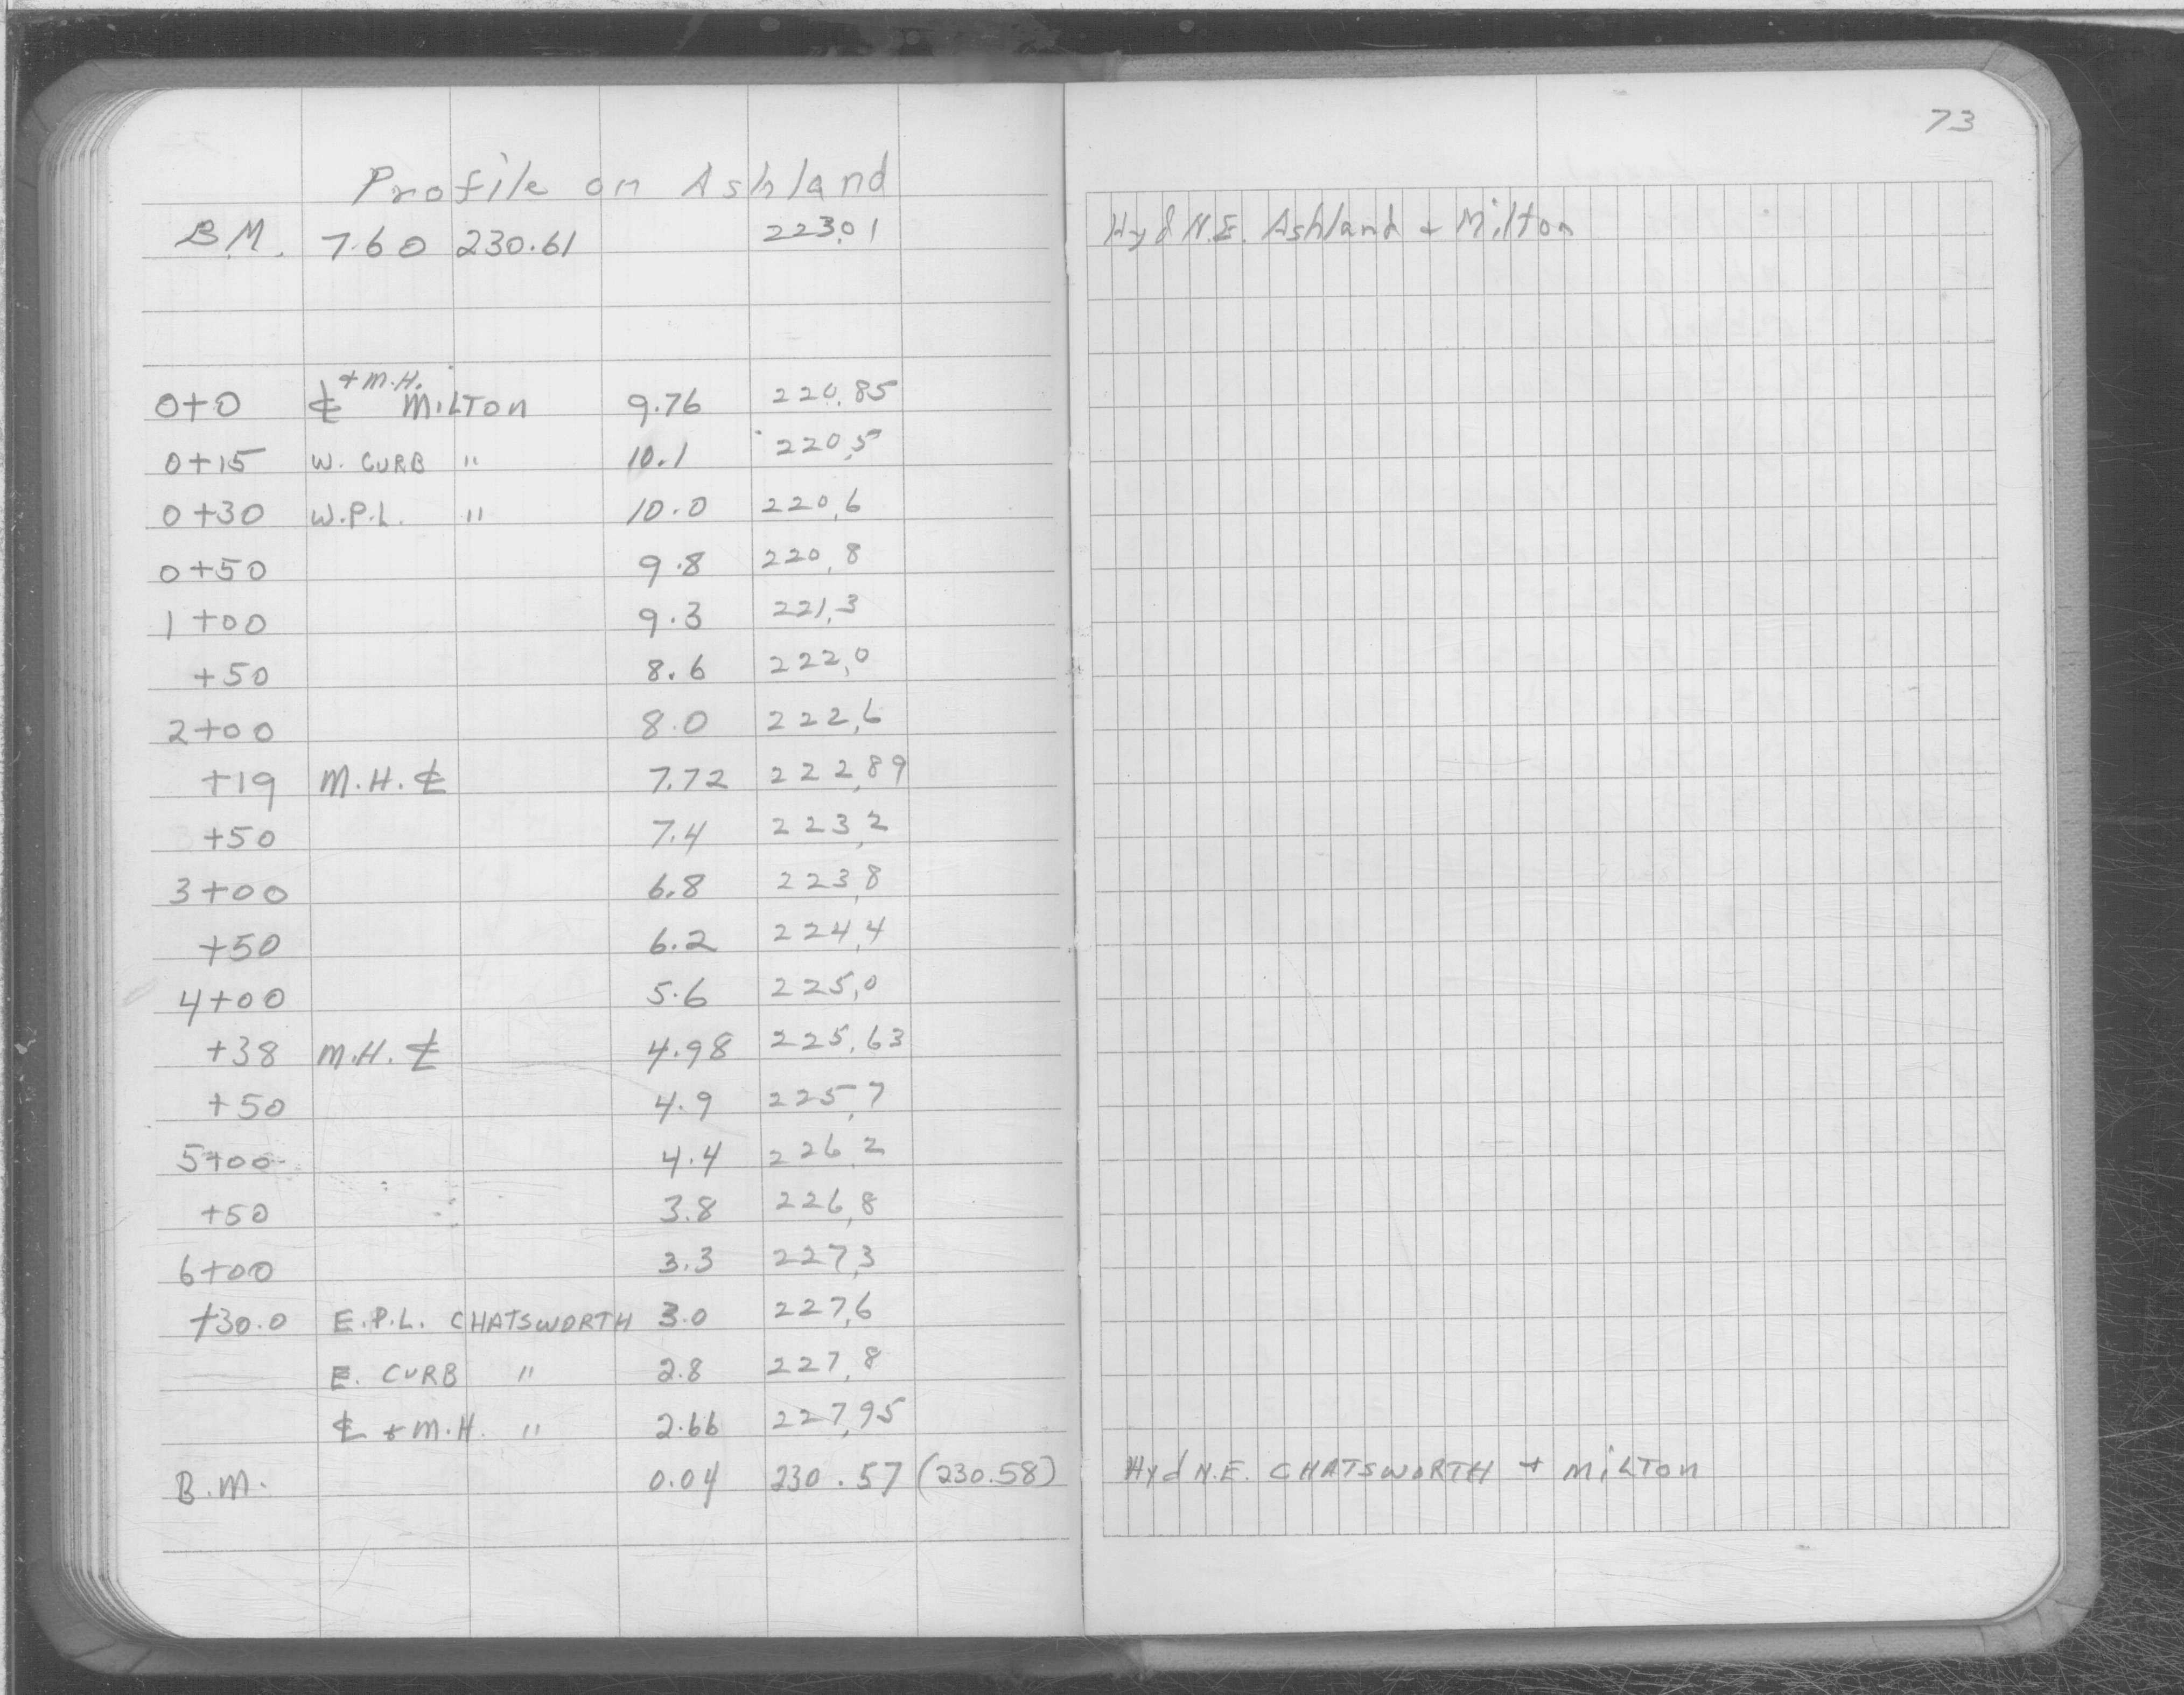 73
Profile on Ashland
B.M. 7.60 230.61 223.01 Hyd N.E. Ashland + Milton
+ M.H.
0+0 ℄ MILTON 9.76 220.85
0+15 W. CURB " 10.1 220.5
0+30 W.P.L. " 10.0 220.6
0+50 9.8 220.8
1+00 9.3 221.3
+50 8.6 222.0
2+00 8.0 222.6
+19 M.H. ℄ 7.72 222.89
+50 7.4 223.2
3+00 6.8 223.8
+50 6.2 224.4
4+00 5.6 225.0
+38 M.H. ℄ 4.98 225.63
+50 4.9 225.7
5+00 4.4 226.2
+50 3.8 226.8
6+00 3.3 227.3
+30.0 E.P.L. CHATSWORTH 3.0 227.6
E. CURB " 2.8 227.8
℄ + M.H. " 2.66 227.95
B.M. 0.04 230.57 (230.58) Hyd N.E. CHATSWORTH + MILTON